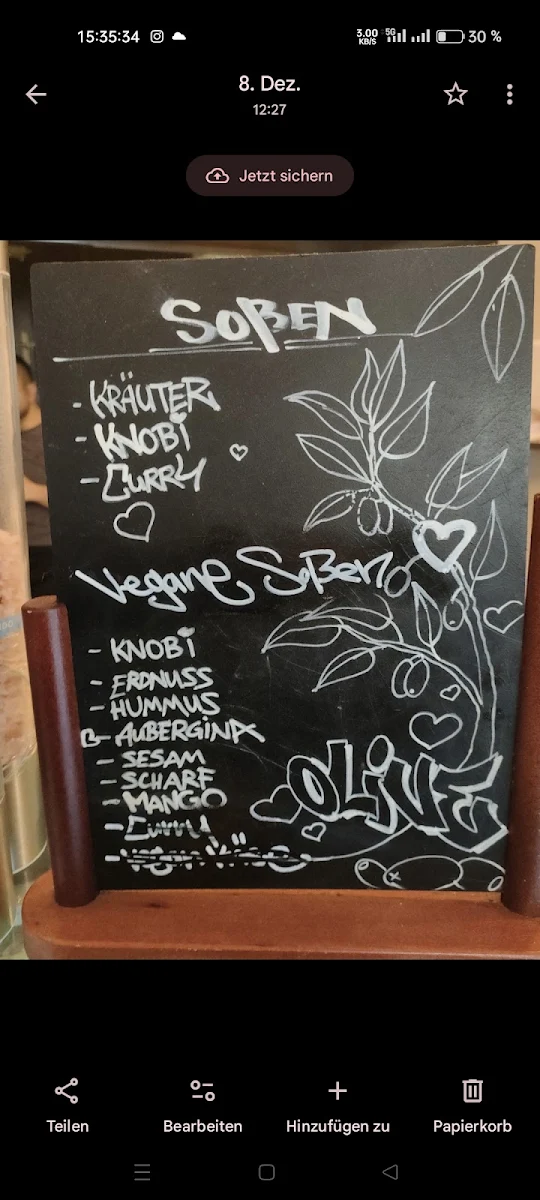 15:35:34
3.00 KB/S 5G 30 %
8. Dez.
12:27
Jetzt sichern
SOßEN
- KRÄUTER
- KNOBi
- CURRY
Vegane Soßen
- KNOBi
- ERDNUSS
- HUMMUS
- AUBERGiNA
- SESAM
- SCHARF
- MANGO
- Curry
OLiVE
Teilen
Bearbeiten
Hinzufügen zu
Papierkorb